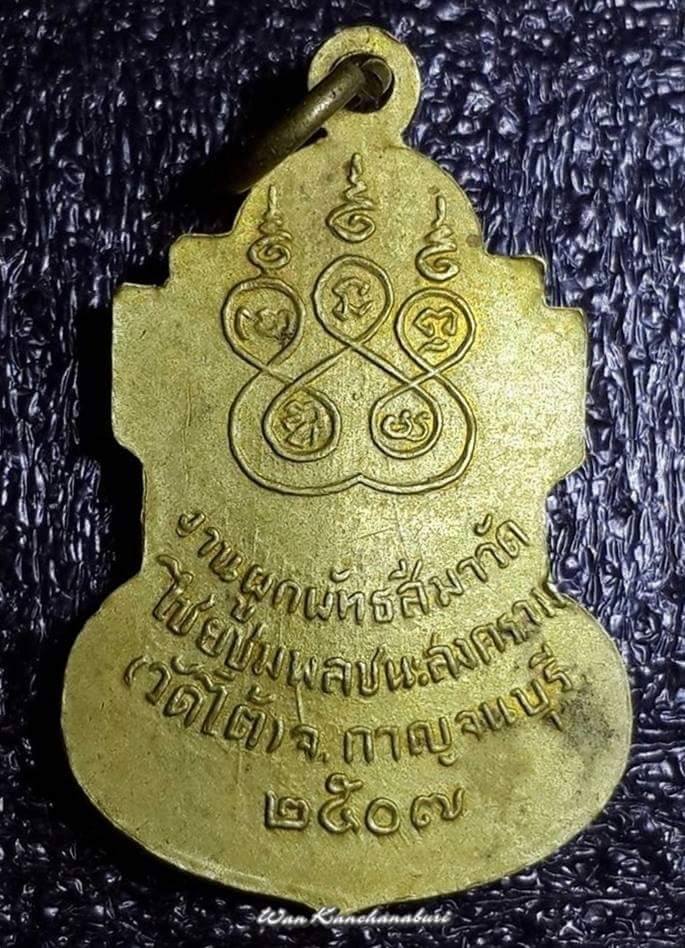 งานผูกพัทธสีมาวัด
ไชยชุมพลชนะสงคราม
(วัดใต้) จ. กาญจนบุรี
๒๕๐๗
Wan Kanchanaburi